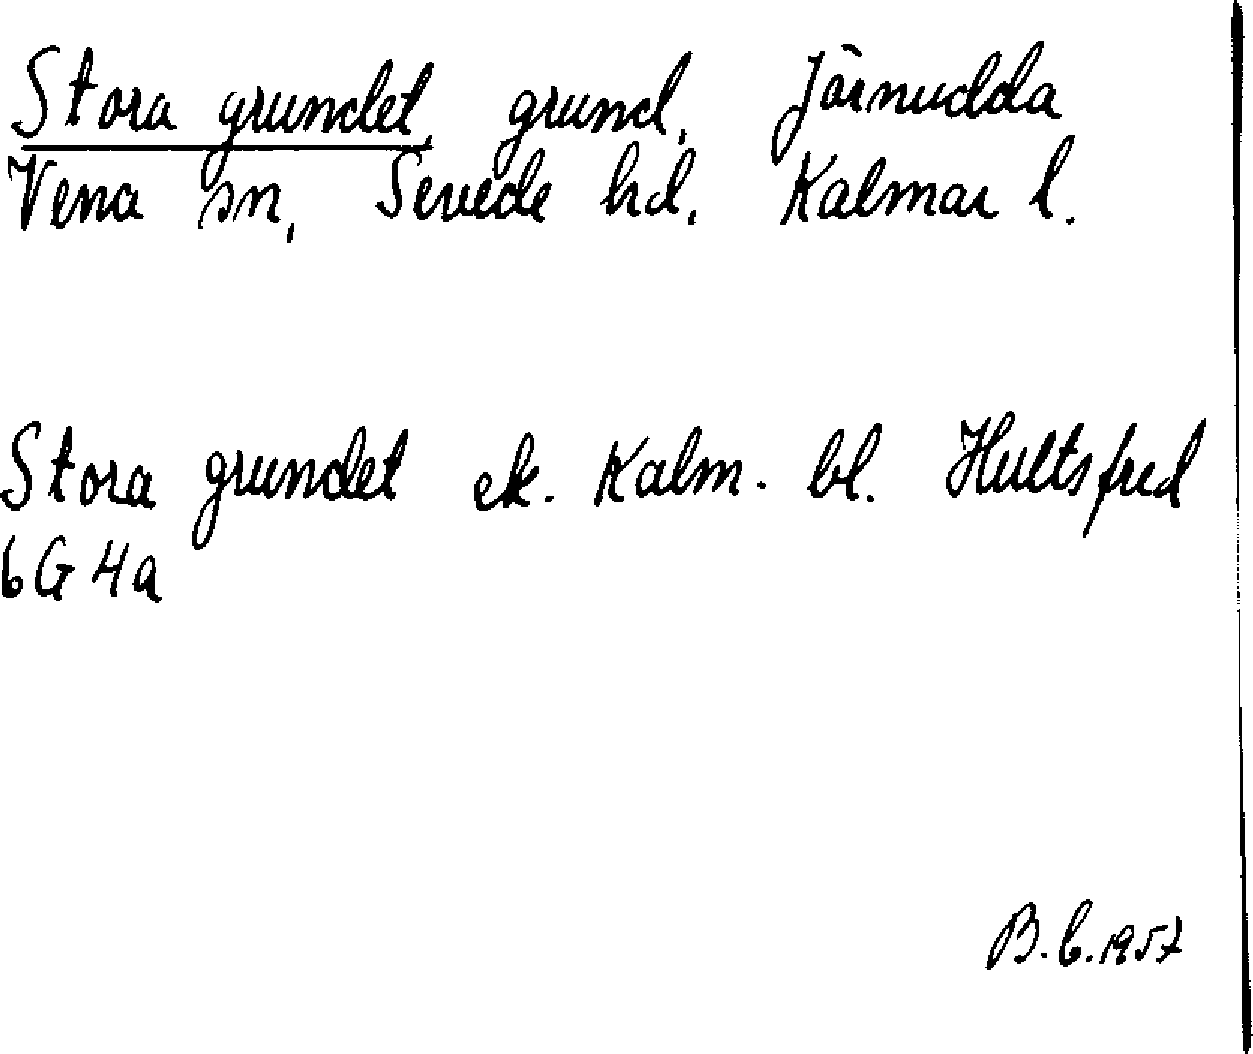 Stora grundet, grund, Järnudda
Vena sn, Sevede hd, Kalmar l.
Stora grundet ek. Kalm. bl. Hultsfred
6G 4a
B.C.1957